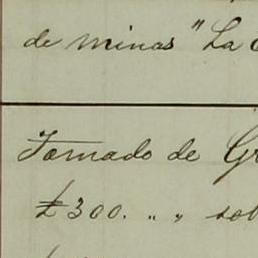 de minas "La
Tomado de
£300. " " sob